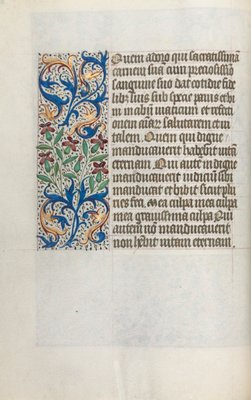 Quem adoro qui sacratissimã
carnem suã cum preciosissimo
sanguine suo dat cotidie fide
libus suis sub specie panis et vi
ni in cibum viaticum et refecti
onem atqz salutarem et vi
talem. Quem qui digne
manducaverit habebit vitam
eternam. Qui aut̃ indigne
manducaverit iudicium sibi
manducat et bibit sicut pl̃u
res mea culpa mea culpa
mea gravissima culpa Qui
autem nõ manducaverit
non habebit vitam eternam.